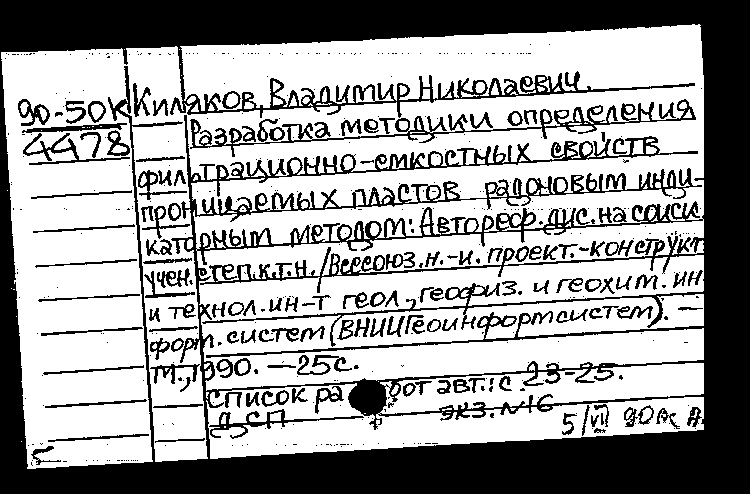 90-50к Киляков, Владимир Николаевич.
4478 Разработка методики определения
фильтрационно-емкостных свойств
проницаемых пластов радоновым инди-
каторным методом: Автореф. дис. на соиск.
учен. степ. к.т.н. / Всесоюз. н.-и. проект.-конструкт.
и технол. ин-т геол., геофиз. и геохим. ин-
форм. систем (ВНИИГеоинформсистем). —
М., 1990. — 25с.
Список работ авт.: с. 23-25.
ДСП экз. №16
5/VII 90